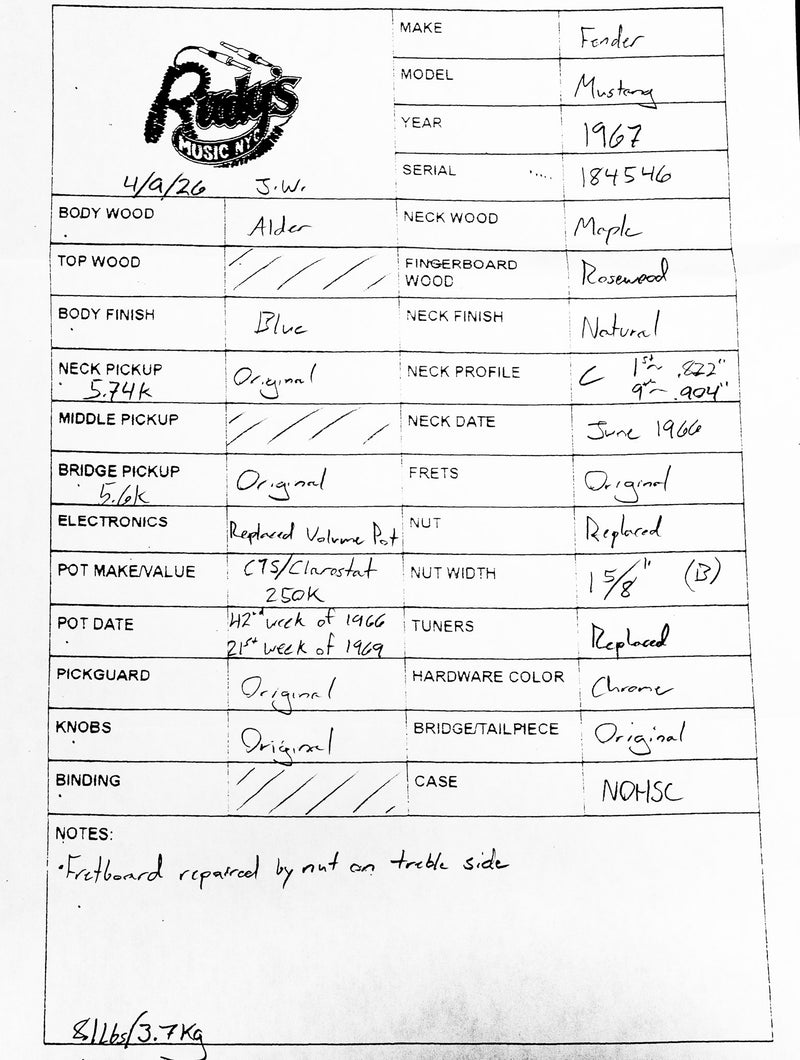 Rudy's
MUSIC NYC
4/9/26 J.W.
MAKE Fender
MODEL Mustang
YEAR 1967
SERIAL ..... 184546
BODY WOOD Alder NECK WOOD Maple
TOP WOOD FINGERBOARD WOOD Rosewood
BODY FINISH Blue NECK FINISH Natural
NECK PICKUP 5.74K Original NECK PROFILE C 1st~ .822"
9th~ .904"
MIDDLE PICKUP NECK DATE June 1966
BRIDGE PICKUP 5.6K Original FRETS Original
ELECTRONICS Replaced Volume Pot NUT Replaced
POT MAKE/VALUE CTS/Clarostat 250K NUT WIDTH 1 5/8" (B)
POT DATE 42nd week of 1966
21st week of 1969 TUNERS Replaced
PICKGUARD Original HARDWARE COLOR Chrome
KNOBS Original BRIDGE/TAILPIECE Original
BINDING CASE NOHSC
NOTES:
•Fretboard repaired by nut on treble side
8.1Lbs/3.7Kg